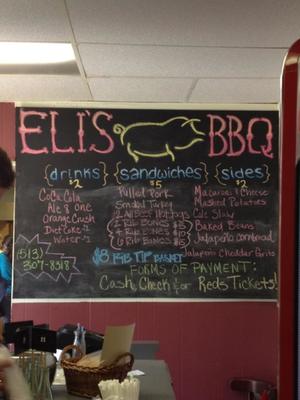 ELI'S BBQ
{drinks} {sandwiches} {sides}
$2 $5 $2
Coca Cola Pulled Pork Macaroni & Cheese
Ale 8 One Smoked Turkey Mashed Potatoes
Orange Crush 2 All Beef Hot Dogs Cole Slaw
Diet Coke 2 Rib Bones $5 Baked Beans
Water Rib Bones Jalapeño Cornbread
(513) Rib Bones Jalapeño Cheddar Grits
307-8318 $8 RIB TIP BASKET
FORMS OF PAYMENT:
Cash, Check or Reds Tickets!